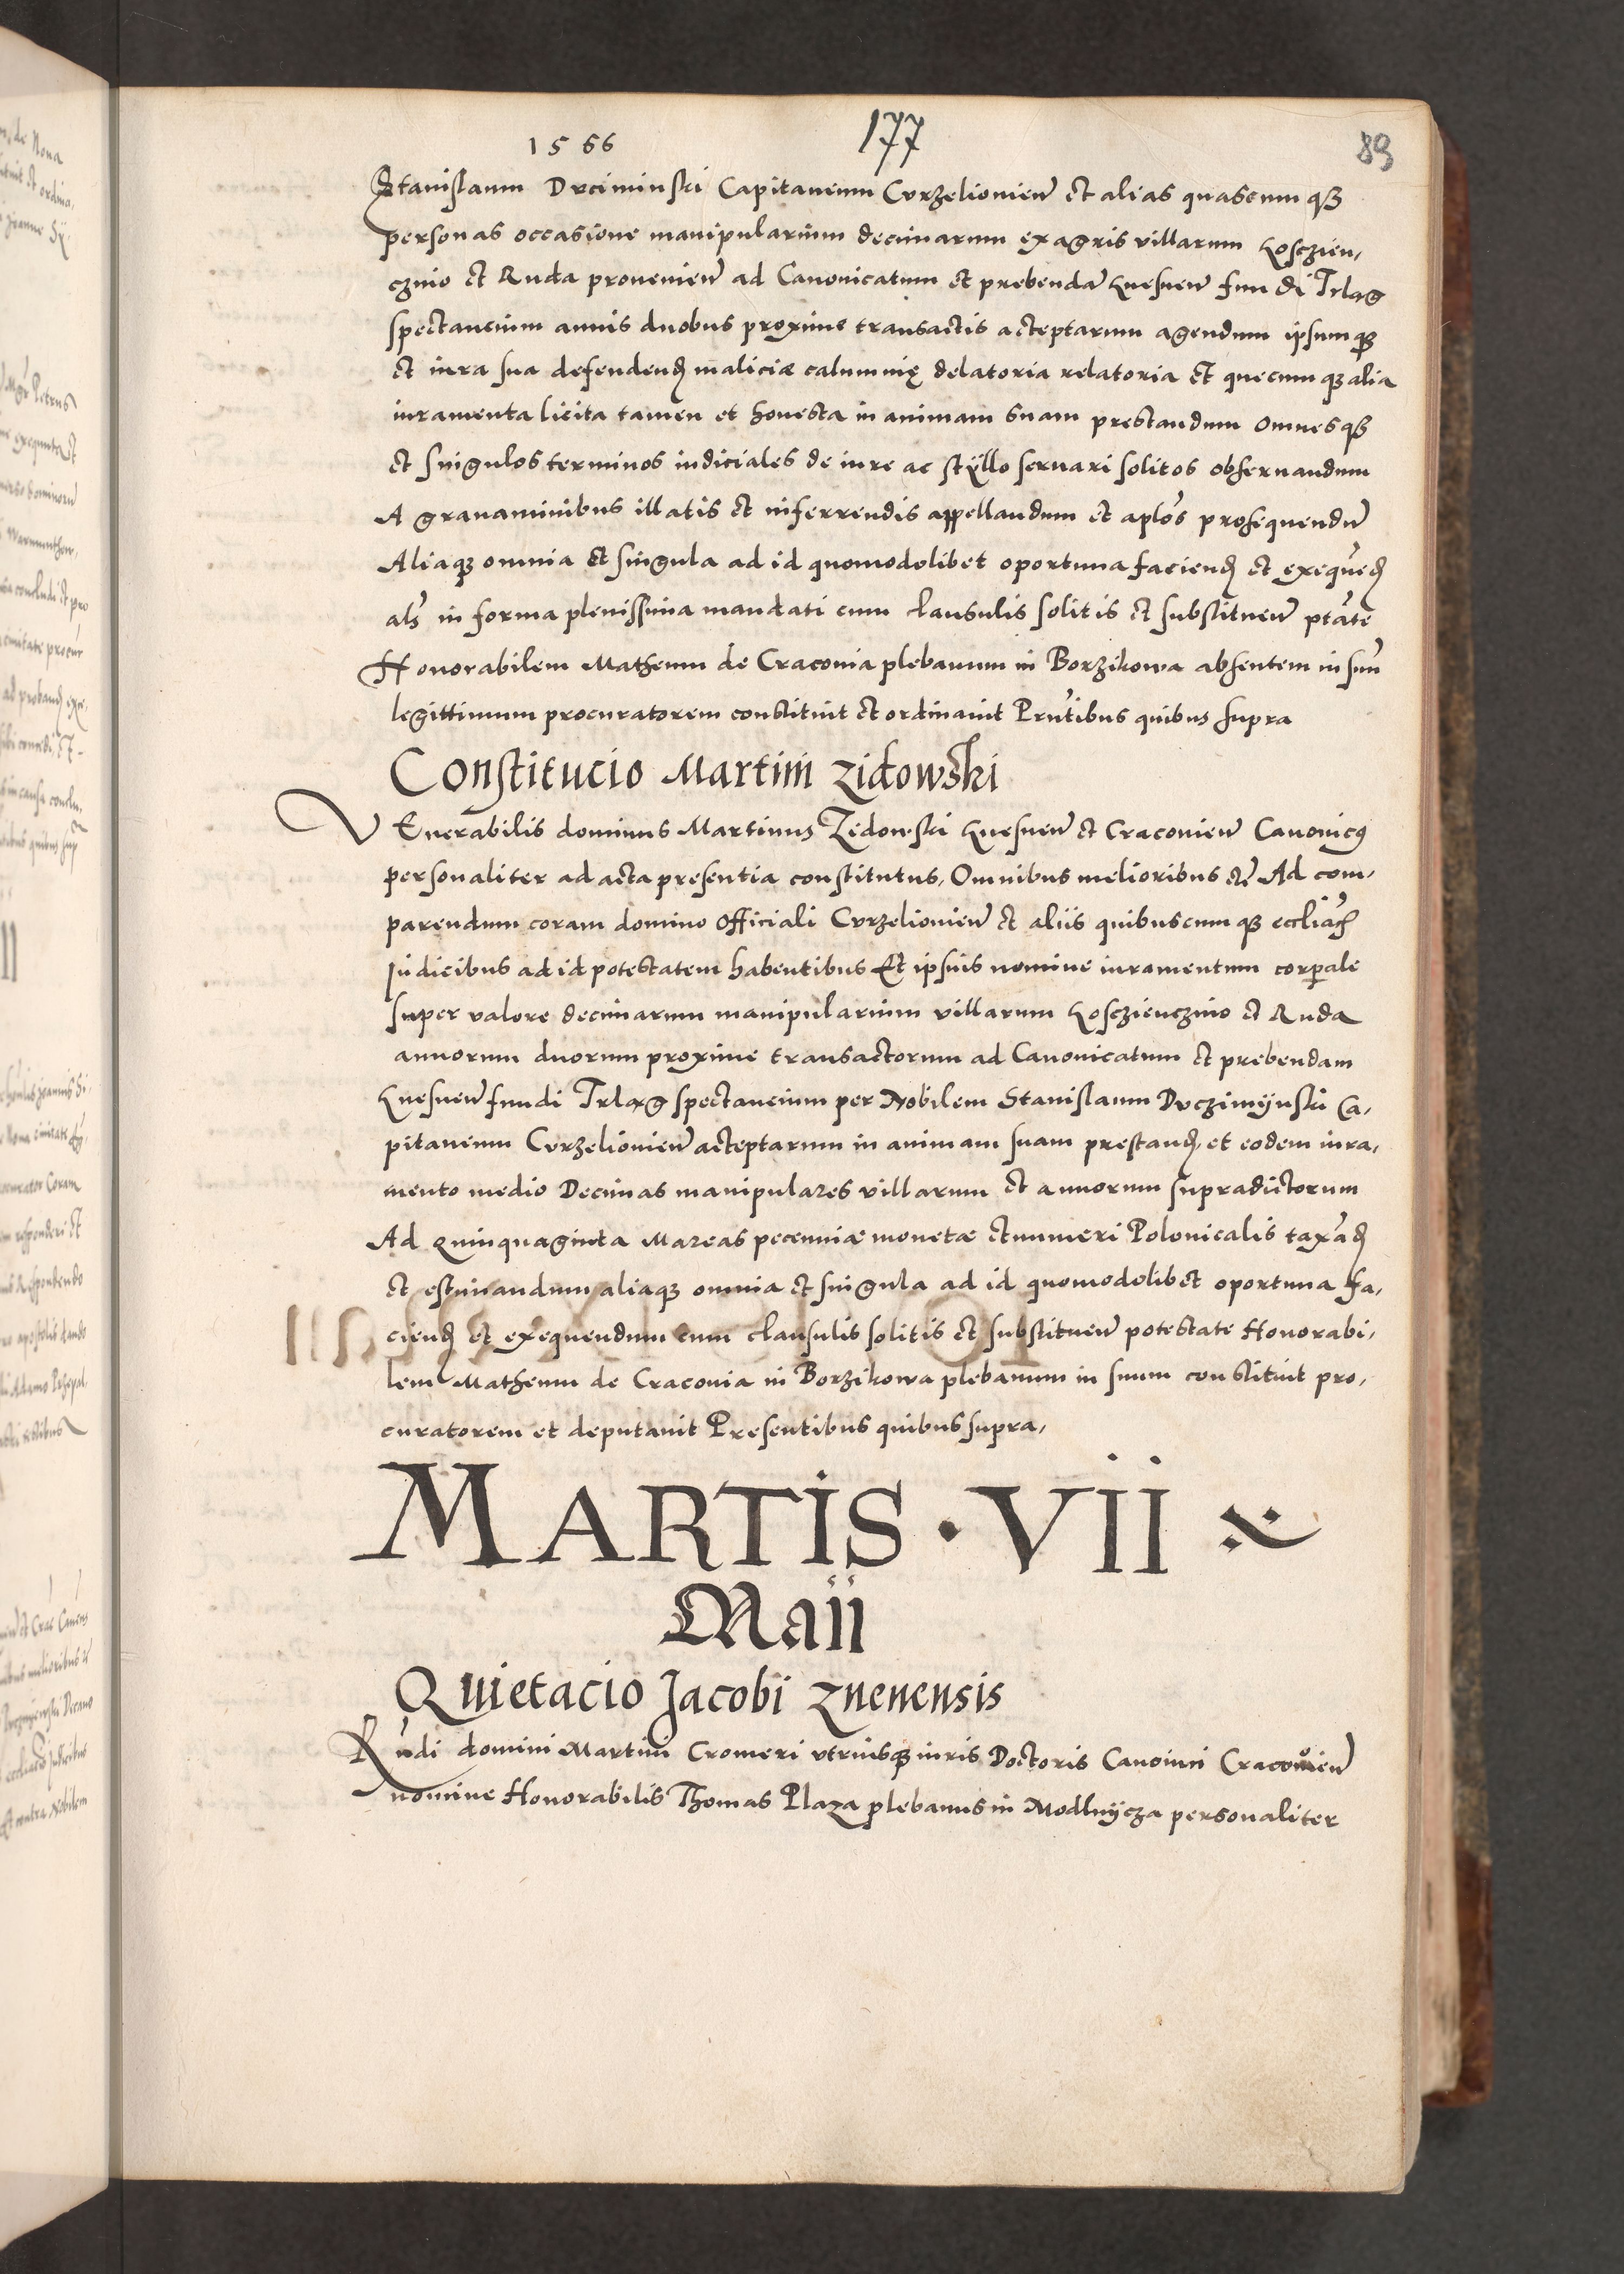 1566
177
89
Stanislaum Drciminski Capitaneum Curzelioviensem et alias quascumque
personas occasione manipularium decimarum ex agris villarum Kosczien,
cznio et Ruda provenien̄ ad Canonicatum et prebendā Gnesnen̄ fundi Trląg
spectancium annis duobus proxime transactis acceptarum agendum ipsumqꝫ
et iura sua defendenḏ maliciæ calumnię delatoria relatoria et quecumqꝫ alia
iuramenta licita tamen et honesta in animam suam prestandum omnesqꝫ
et singulos terminos iudiciales de iure ac stÿllo servari solitos observandum
A gravaminibus illatis et inferrendis appellandum et aplōs prosequendū
Aliaqꝫ omnia et singula ad id quomodolibet oportuna faciend̄ et exequēd̄
als̄ in forma plenissima mandati cum clausulis solitis et substituen̄ ptāte
Honorabilem Matheum de Craconia plebanum in Borzikowa absentem in suū
legittimum procuratorem constituit et ordinavit Prn̄tibus quibus supra
Constitucio Martini Zidowski
VEnerabilis dominus Martinus Zidowski Gnesnen̄ et Craconien̄ Canonicꝯ
personaliter ad acta presentia constitutus, Omnibus melioribus etc̄ Ad com,
parendum coram domino Officiali Curzelionien̄ et aliis quibuscumqꝫ ecclīacis
Judicibus ad id potestatem habentibus Et ipsius nomine iuramentum corporale
super valore decimarum manipularium villarum Koscziencznio et Ruda
annorum duorum proxime transactorum ad Canonicatum et prebendam
Gnesnen̄ fundi Trląg spectancium per Nobilem Stanislaum Drczimÿnski Ca,
pitaneum Curzelionien̄ acceptarum in animam suam prestand̄, et eodem iura,
mento medio Decimas manipulares villarum et annorum supradictorum
Ad Quinquaginta Marcas pecuniæ monetæ et numeri Polonicalis taxād̄
et estimandum aliaqꝫ omnia et singula ad id quomodolibet oportuna fa,
ciend̄ et exequendum cum clausulis solitis et substituen̄ potestate Honorabi,
lem Matheum de Craconia in Borzikowa plebanum in suum constituit pro,
curatorem et deputavit Presentibus quibus supra,
MARTIS · VII
Maii
Quietacio Jacobi Znenensis
Rn̄di domini Martini Cromeri utriusqꝫ iuris Doctoris Canonici Craconien̄
nomine Honorabilis Thomas Plaza plebanus in Modlnÿcza personaliter